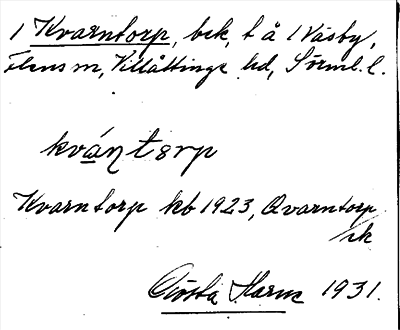 1 Kvarntorp, bek, t å 1 Väsby,
Flens sn, Villåttinge hd, Sörml. l.
kván torp
Kvarntorp kb 1923, Qvarntorp
sk
Gösta Harne 1931.